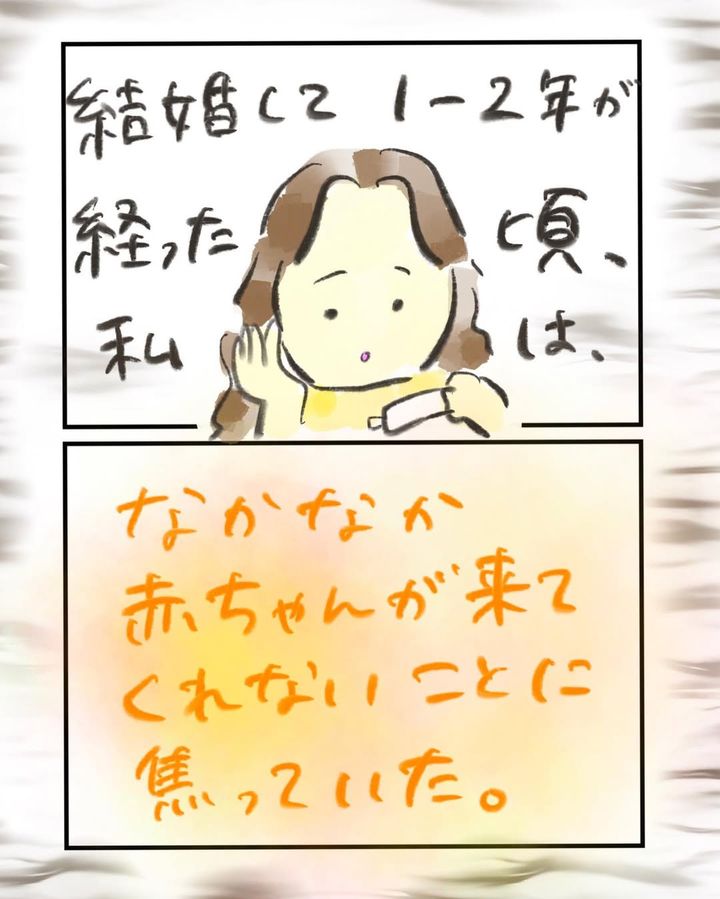 結婚して 1-2年が
経った頃、
私は、
なかなか
赤ちゃんが来て
くれないことに
焦っていた。